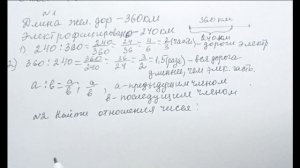 №1
Длина жел. дор - 360 км
Электрофицировано - 240 км
360 км
240 км
1) 240:360 = 240/360 = 24/36 = 4/6 = 2/3 (часть) - дороги электр
2) 360:240 = 360/240 = 36/24 = 3/2 = 1,5 (раз) - вся дорога
длиннее, чем элек. часть.
a:b = a/b, a/b, a - предыдущим членом
b - последующим членом
№2 Найти отношения чисел: